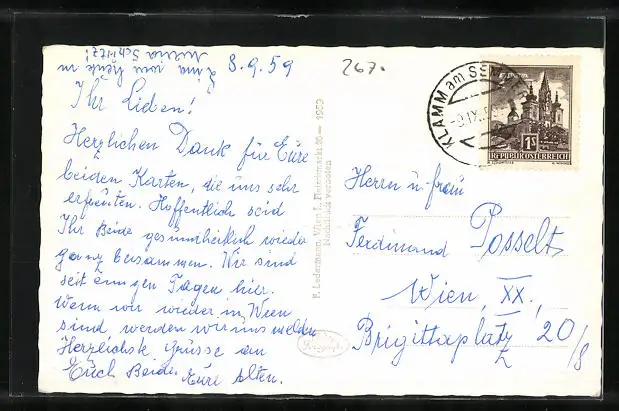 8.9.59
267.
Ihr Lieben!
Herzlichen Dank für Eure
beiden Karten, die uns sehr
erfreuten. Hoffentlich seid
Ihr Beide gesundheitlich wieder
ganz beisammen. Wir sind
seit einigen Tagen hier.
Wenn wir wieder in Wien
sind werden wir uns melden
Herzlichste Grüsse an
Euch Beide, Eure Alten.
Maria Schütz!
F. Ledermann, Wien I, — 1959
Nachdruck verboten
KLAMM am SE
MARIAZELL
1S
REPUBLIK ÖSTERREICH
Herrn u. frau
Ferdinand Posselt
Wien, XX.,
Brigittaplatz 20/8